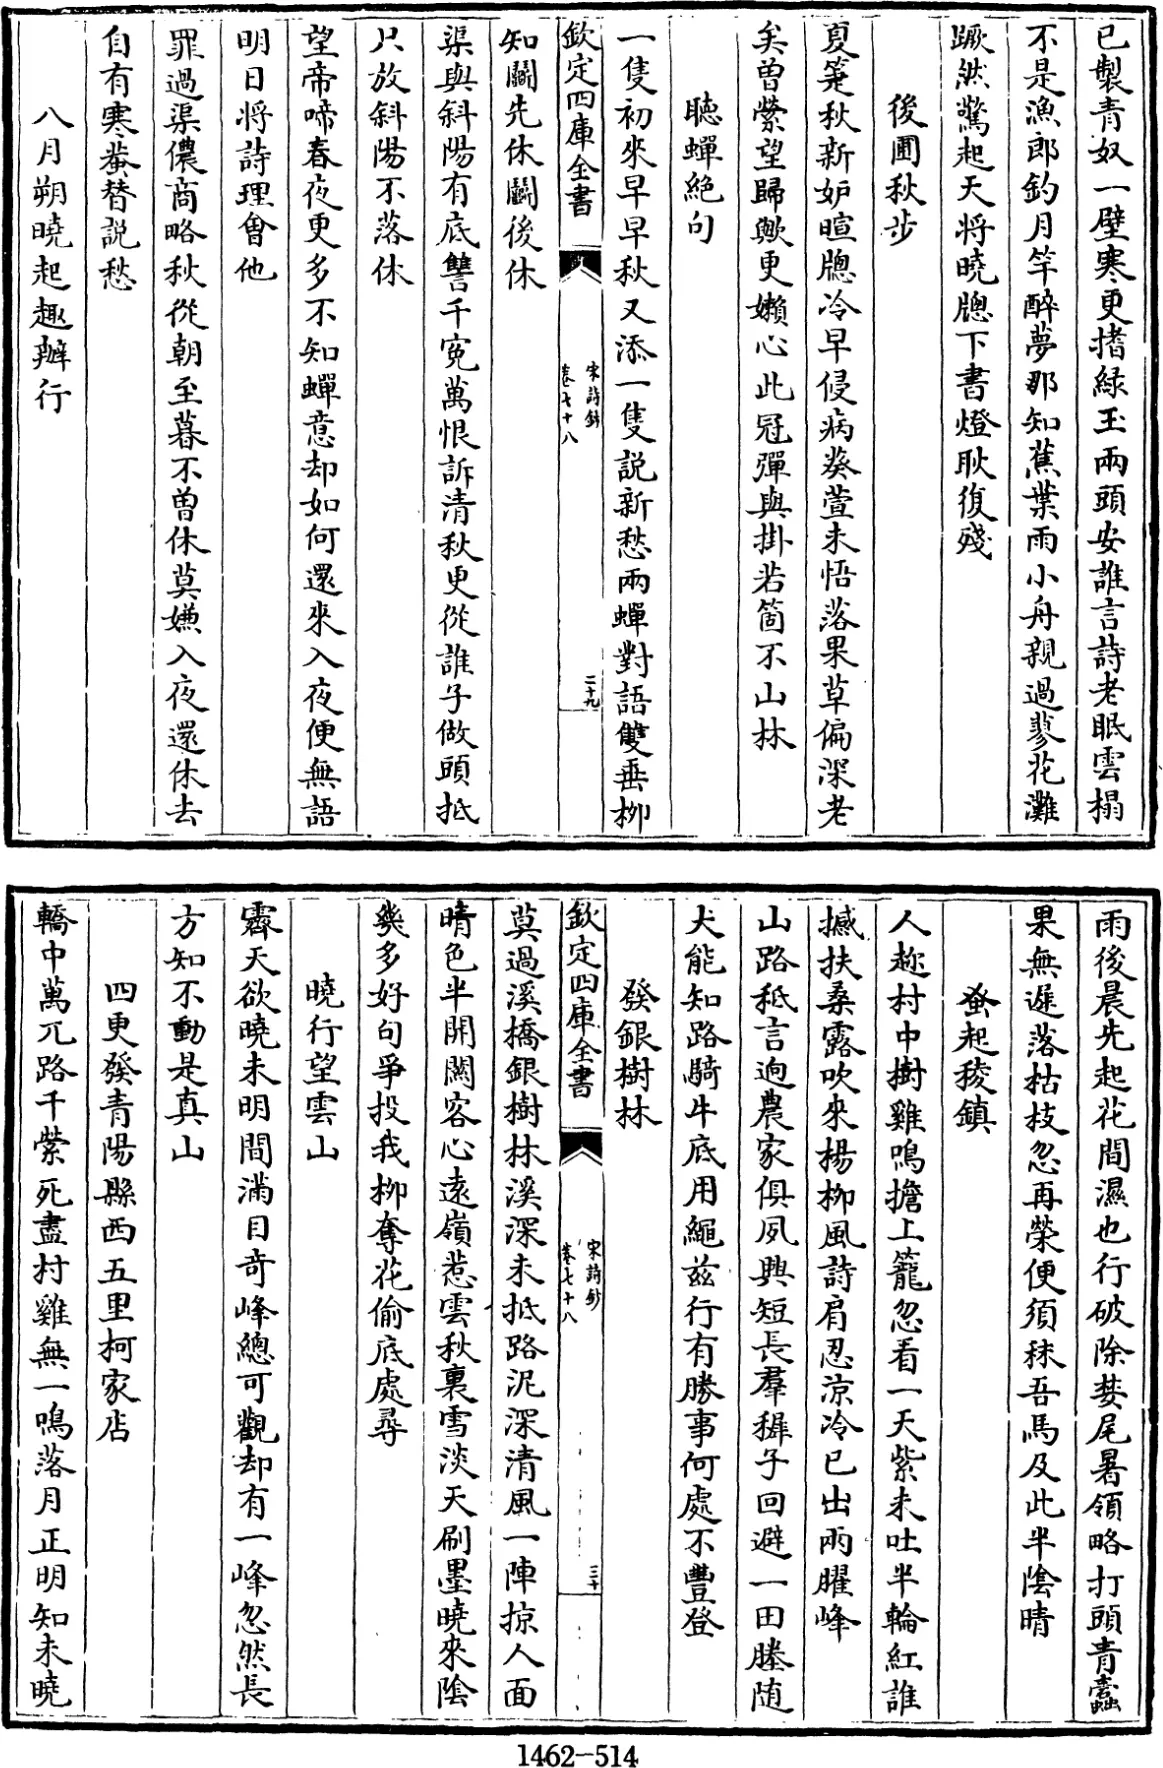 已製青奴一壁寒更揩緑玉兩頭安誰言詩老眠雲榻
不是漁郎釣月竿醉夢那知蕉葉雨小舟親過蓼花灘
蹶然驚起天将曉牕下書燈耿復殘
後圃秋步
夏筵秋新妒暄牕冷早侵病葵萱未悟落果草偏深老
矣曾縈望歸歟更嬾心此冠彈與掛若箇不山林
聽蟬絶句
一隻初來早早秋又添一隻説新愁兩蟬對語雙垂栁
欽定四庫全書
宋詩鈔
卷七十八
二十九
知鬭先休鬭後休
渠與斜陽有底讐千寃萬恨訴清秋更從誰子做頭抵
只放斜陽不落休
望帝啼春夜更多不知蟬意却如何還來入夜便無語
明日将詩理會他
罪過渠儂商略秋從朝至暮不曽休莫嫌入夜還休去
自有寒蛩替説愁
八月朔曉起趣辦行
雨後晨先起花間濕也行破除婪尾暑領略打頭青蠹
果無遲落枯枝忽再榮便須秣吾馬及此半陰晴
蚤起稜鎮
人趂村中樹雞鳴擔上籠忽看一天紫未吐半輪紅誰
撼扶桑露吹來楊栁風詩肩忍凉冷已出兩臞峰
山路秪言迥農家俱夙興短長羣穉子回避一田塍随
犬能知路騎牛底用繩兹行有勝事何處不豐登
發銀樹林
莫過溪橋銀樹林溪深未抵路泥深清風一陣掠人面
欽定四庫全書
宋詩鈔
卷七十八
三十
晴色半開關客心逺嶺惹雲秋裏雪淡天刷墨曉來陰
㡬多好句爭投我栁奪花偷底處尋
曉行望雲山
霽天欲曉未明間滿目奇峰總可觀却有一峰忽然長
方知不動是真山
四更發青陽縣西五里柯家店
轎中萬兀路千縈死盡村雞無一鳴落月正明知未曉
1462-514